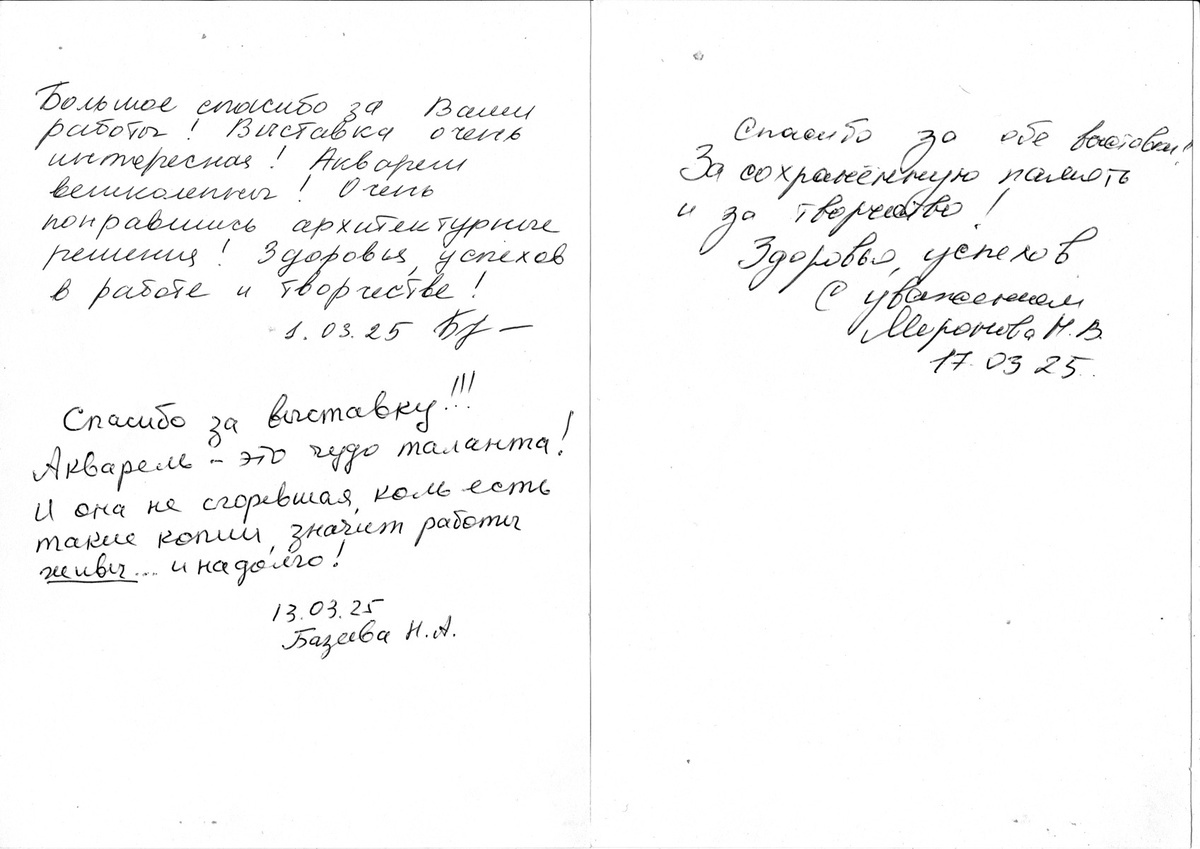 Большое спасибо за Ваши
работы! Выставка очень
интересная! Акварели
великолепны! Очень
понравились архитектурные
решения! Здоровья, успехов
в работе и творчестве!
1.03.25
Спасибо за выставку!!!
Акварель – это чудо таланта!
И она не сгоревшая, коль есть
такие копии, значит работы
живы... и надолго!
13.03.25
Базеева Н.А.
Спасибо за обе выставки!!
За сохранённую память
и за творчество!
Здоровья, успехов
С уважением
Миронова Н.В.
17.03 25.